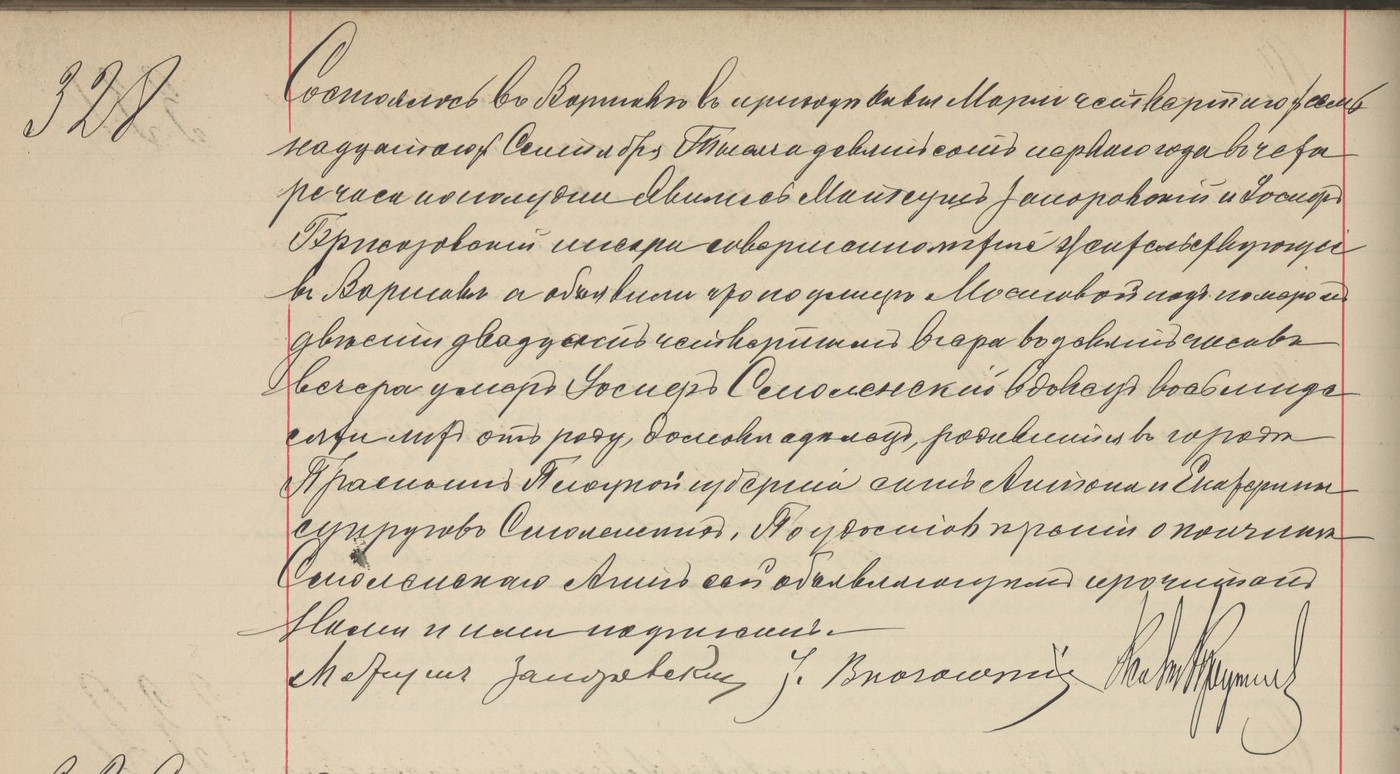 328
Состоялось въ Варшавѣ въ приходѣ Девы Маріи четвертаго /семь
надцатаго/ Сентября Тысяча девятьсотъ перваго года въ четы
ре часа пополудни Явились Матеушъ и Іосифъ
писари совершеннолѣтніе жительствующіе
въ Варшавѣ и объявили что по улицѣ Мостовой подъ номеромъ
двѣсти двадцать четвертымъ вчера въ девять часовъ
вечера умеръ Іосифъ Смоленскій вдовецъ восьмиде
сяти лѣтъ отъ роду, домовладѣлецъ, родившійся въ городѣ
Праснышъ Плоцкой губерніи сынъ Антона и Екатерины
супруговъ Смоленскихъ. По удостовѣреніи о кончинѣ
Смоленскаго Актъ сей объявляющимъ прочитанъ
Нами и ими подписанъ.